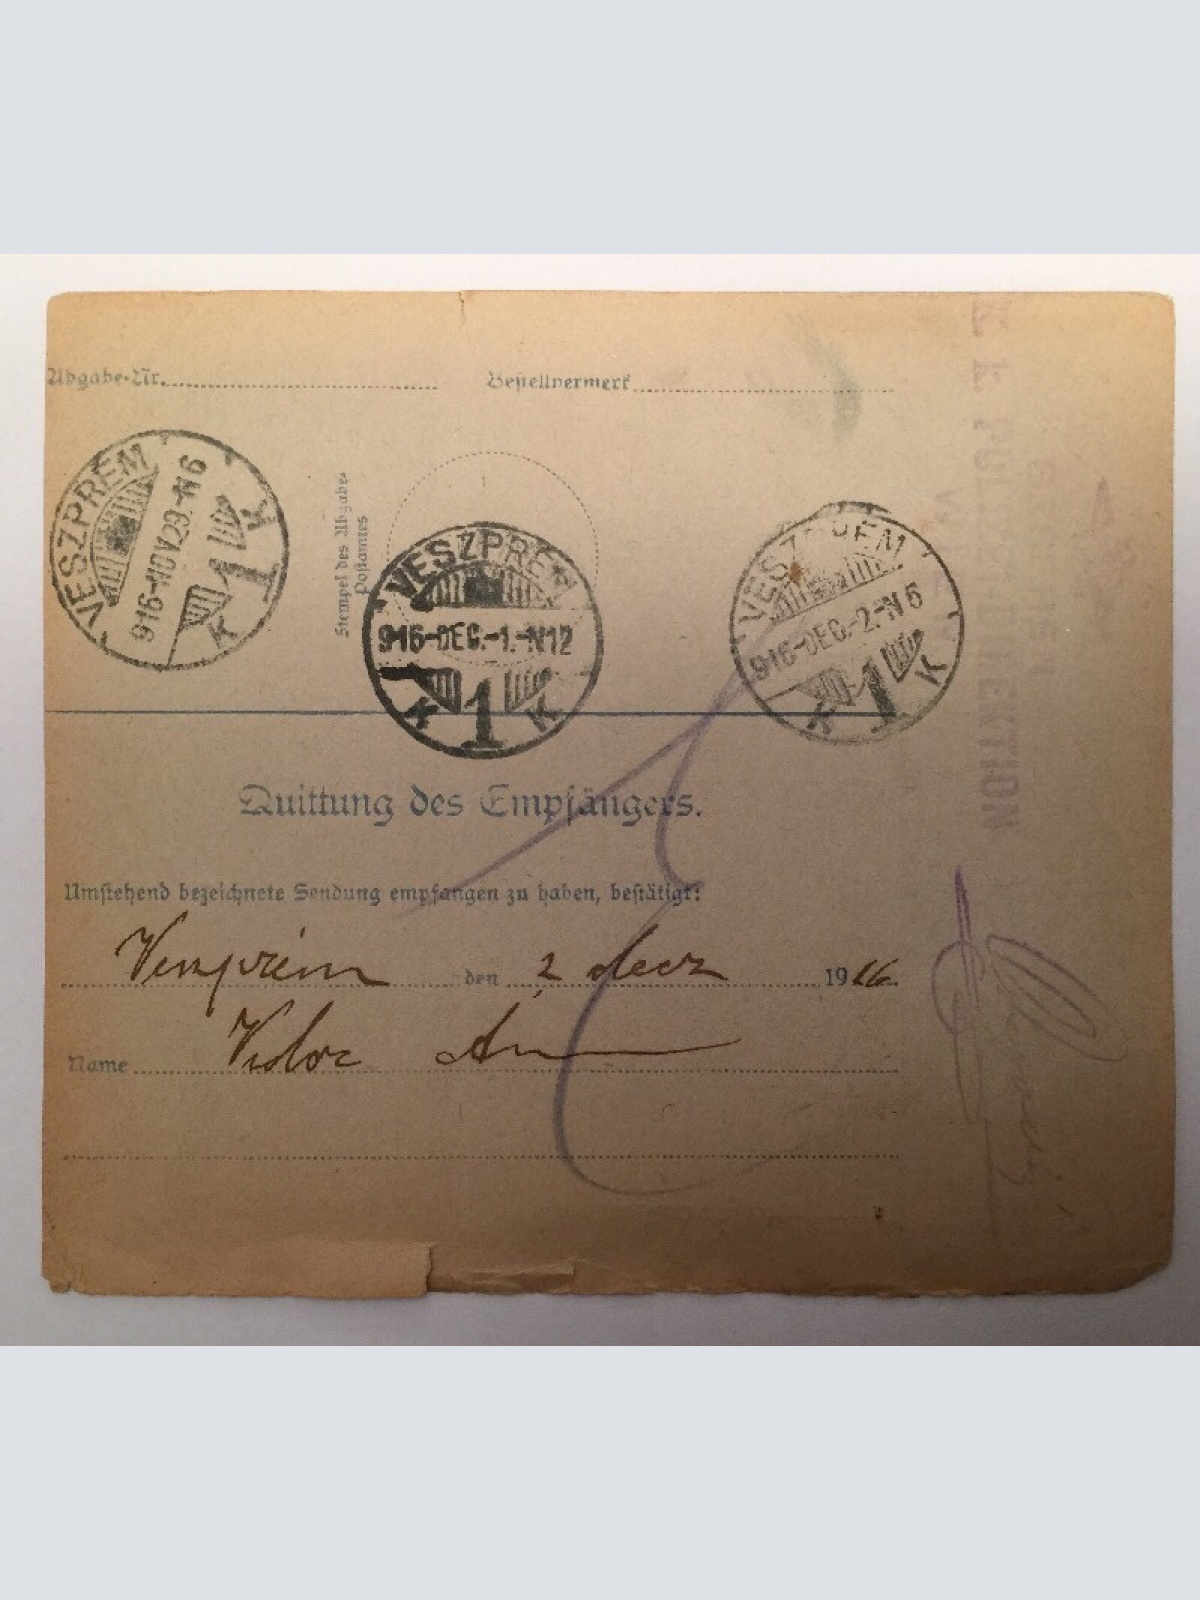 Abgabe-Nr. Bestellvermerk
VESZPRÉM
916-NOV.29.-N6
K 1 K
Stempel des Abgabe-
Postamtes
VESZPRÉM
916-DEC.-1.-N12
K 1 K
VESZPRÉM
916-DEC.-2.-N6
K 1 K
Quittung des Empfängers.
Umstehend bezeichnete Sendung empfangen zu haben, bestätigt:
Veszprém den 2 decz 1916
Name